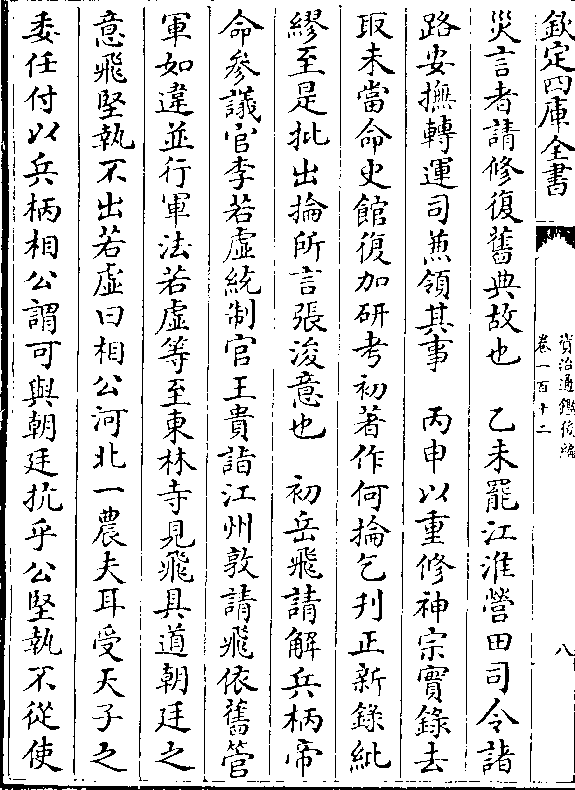 欽定四庫全書
資治通鑑後編
卷一百十二
八
災言者請修復舊典故也　乙未罷江淮營田司令諸
路安撫轉運司兼領其事　丙申以重修神宗實錄去
取未當命史館復加研考初著作何掄乞刋正新錄紕
繆至是批出掄所言張浚意也　初岳飛請解兵柄帝
命參議官李若虛統制官王貴詣江州敦請飛依舊管
軍如違並行軍法若虛等至東林寺見飛具道朝廷之
意飛堅執不出若虛曰相公河北一農夫耳受天子之
委任付以兵柄相公謂可與朝廷抗乎公堅執不從使